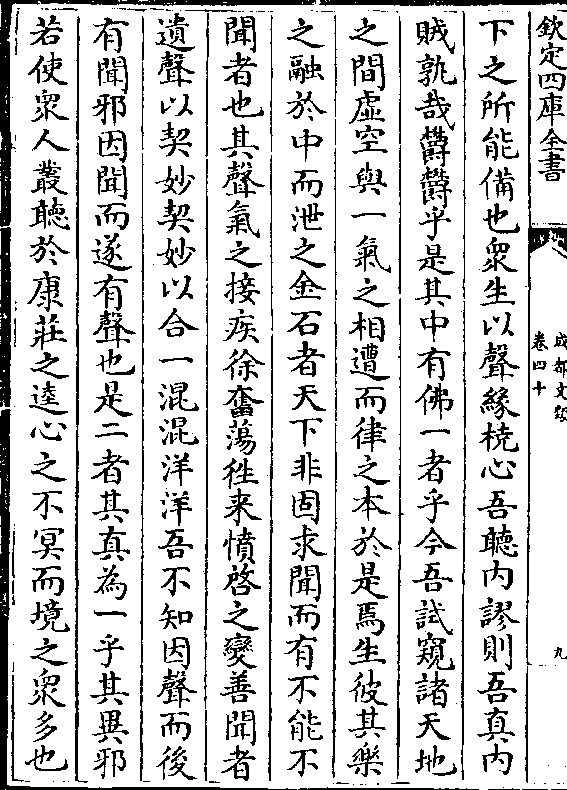 欽定四庫全書
成都文類
卷四十
九
下之所能備也衆生以聲緣橈心吾聽内謬則吾真内
賊孰哉欝欝乎是其中有佛一者乎今吾試窺諸天地
之間虚空與一氣之相遭而律之本於是焉生彼其樂
之融於中而泄之金石者天下非固求聞而有不能不
聞者也其聲氣之接疾徐奮蕩徃来憤啓之變善聞者
遺聲以契妙契妙以合一混混洋洋吾不知因聲而後
有聞邪因聞而遂有聲也是二者其真為一乎其異邪
若使衆人叢聽於康莊之逵心之不冥而境之衆多也